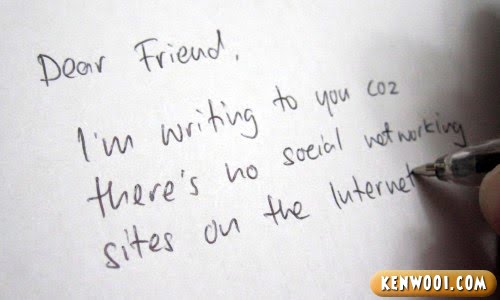 Dear Friend,
I'm writing to you coz
there's no social networking
sites on the Internet
KENWOOI.COM